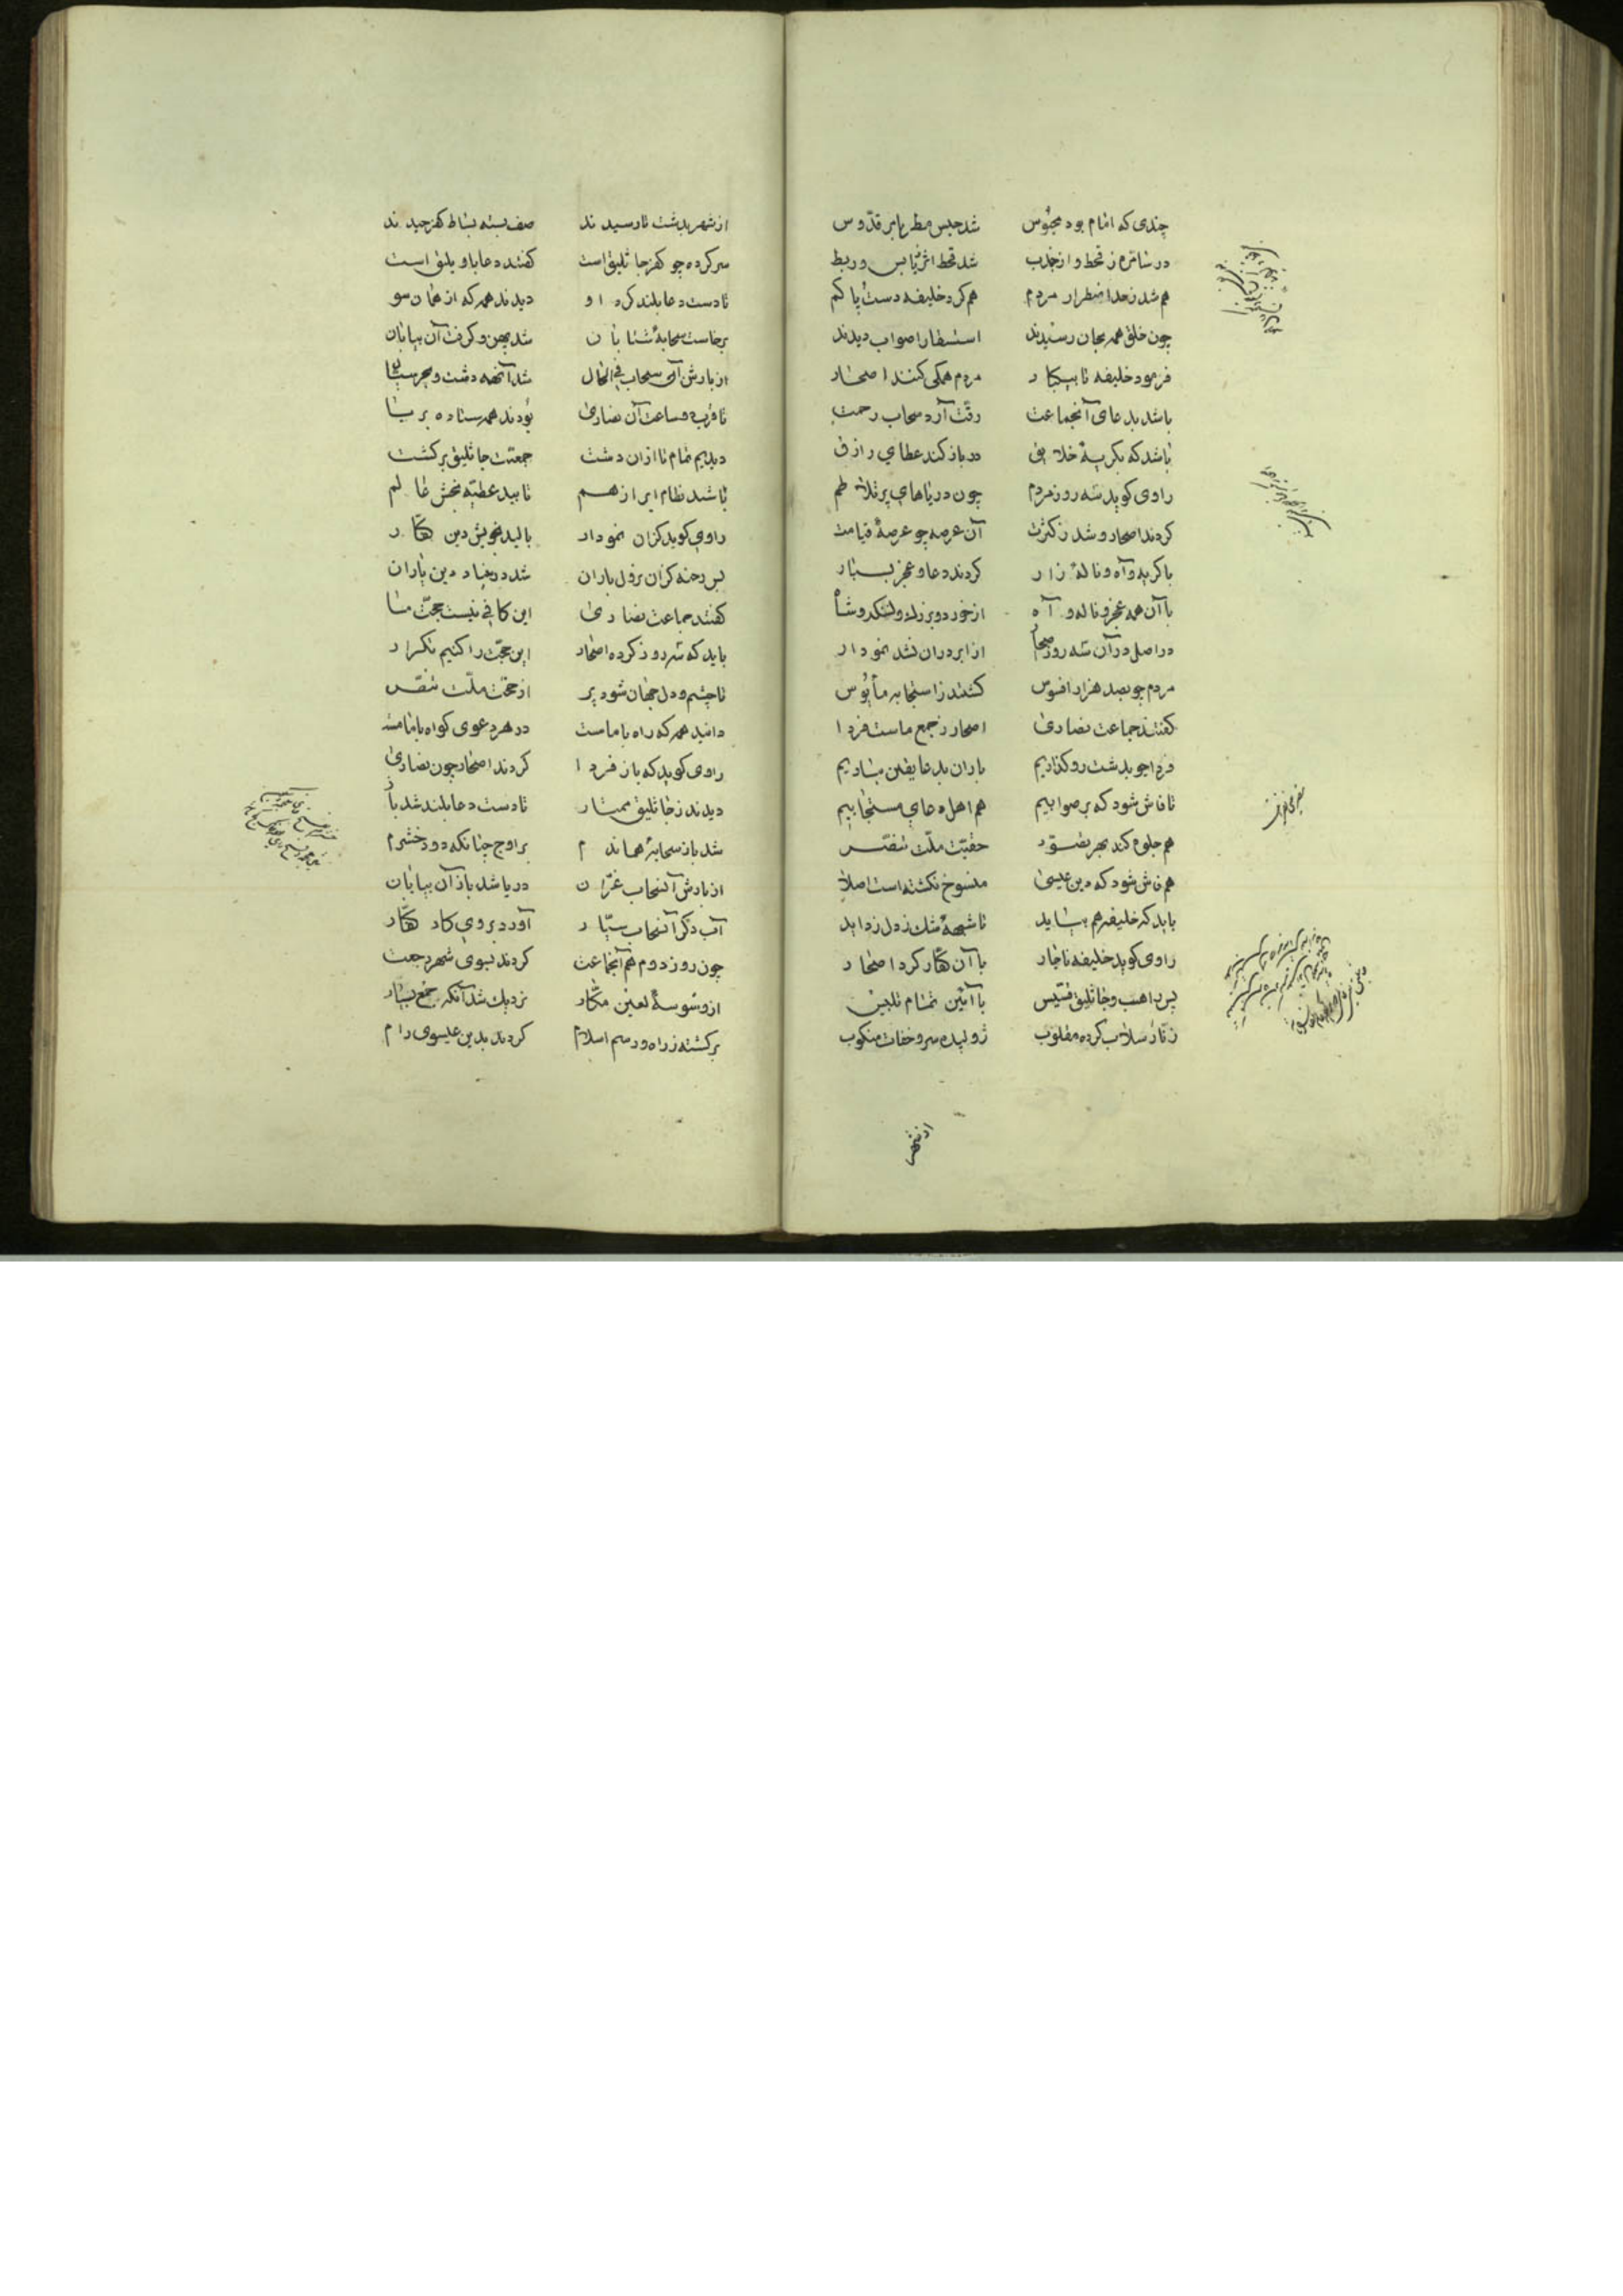 چندی که امام بود محبوس شد حبس مطر بامر قدّوس
در سامره ز قحط و از جذب شد قحط اثر یابس و ربط
هم شد ز حد اضطرار مردم هم کرد خلیفه دست و پا گم
چون خلق همه بجان رسیدند استسقا را صواب دیدند
فرمود خلیفه تا بیکبار مردم همگی کنند اصحار
باشد بدعای آنجماعت رقّت آرد سحاب رحمت
باشد که بگریهٔ خلایق در باز کند عطای رازق
راوی گوید سه روز مردم چون دریاهای پرتلاطم
کردند اصحار و شد ز کثرت آن عرصه چو عرصهٔ قیامت
با گریه و آه و نالهٔ زار کردند دعا و عجز بسیار
با آن همه عجز و ناله و آه از خورد و بزرگ و لشکر و شاه
در اصل در آن سه روز اصحار از ابر در آن نشد نمودار
مردم چو بصد هزار افسوس گشتند ز استجابه مأیوس
گفتند جماعت نصاریٰ اصحار ز جمع ماست فردا
فردا چو بدشت رو گذاریم باران بدعا یقین بباریم
تا فاش شود که بر صوابیم هم اهل دعای مستجابیم
هم جلوه کند بهر تصوّر حقیّت ملّت تنصّر
هم فاش شود که دین عیسیٰ منسوخ نگشته است اصلا
باید که خلیفه هم بیاید تا شبههٔ شک ز دل زداید
راوی گوید خلیفه ناچار با آن کفّار کرد اصحار
پس راهب و جاثلیق قسّیس با آئین تمام تلبیس
زنّار سلاب کرده مقلوب ژولیده سر و خفات منکوب
از شهر
از شهر بدشت تا رسیدند صف بسته بساط کفر چیدند
سرکرده چو کفر جاثلیق است گفتند دعا باو یلیق است
تا دست دعا بلند کرد او دیدند همه که از همان سو
برخاست سحابهٔ شتابان شد پهن و گرفت آن بیابان
از بارش آن سحاب فی الحال شد آنهمه دشت و بحر سیال
تا قرب دو ساعت آن نصاریٰ بودند همه ستاده بر پا
دیدیم تمام تا از آن دشت جمعیّت جاثلیق برگشت
پاشید نظام ابر از هم تابید عطیّه بخش عالم
راوی گوید کز آن نمودار بالید بخویش دین کفّار
پس رخنه کز آن نزول باران شد در بنیاد دین یاران
گفتند جماعت نصاریٰ این کافی نیست حجّت ما
باید که سه روز کرده اصحار این حجّت را کنیم تکرار
تا چشم و دل جهان شود پر از حقّیت ملّت تنصّر
دانید همه که راه با ماست در هر دعوی گواه با ماست
راوی گوید که باز فردا کردند اصحار چون نصاریٰ
دیدند ز جاثلیق مختار تا دست دعا بلند شد باز
شد باز سحابهٔ هماندم بر اوج چنانکه دود خشرم
از بارش آن سحاب غرّان دریا شد باز آن بیابان
آب دگر آن سحاب سیّار آورد بروی کار کفّار
چون روز دوم هم آنجماعت کردند بسوی شهر رجعت
از وسوسهٔ لعین مکّار نزدیک شد آنکه جمع بسیار
برگشته ز راه و رسم اسلام گردند بدین عیسوی رام